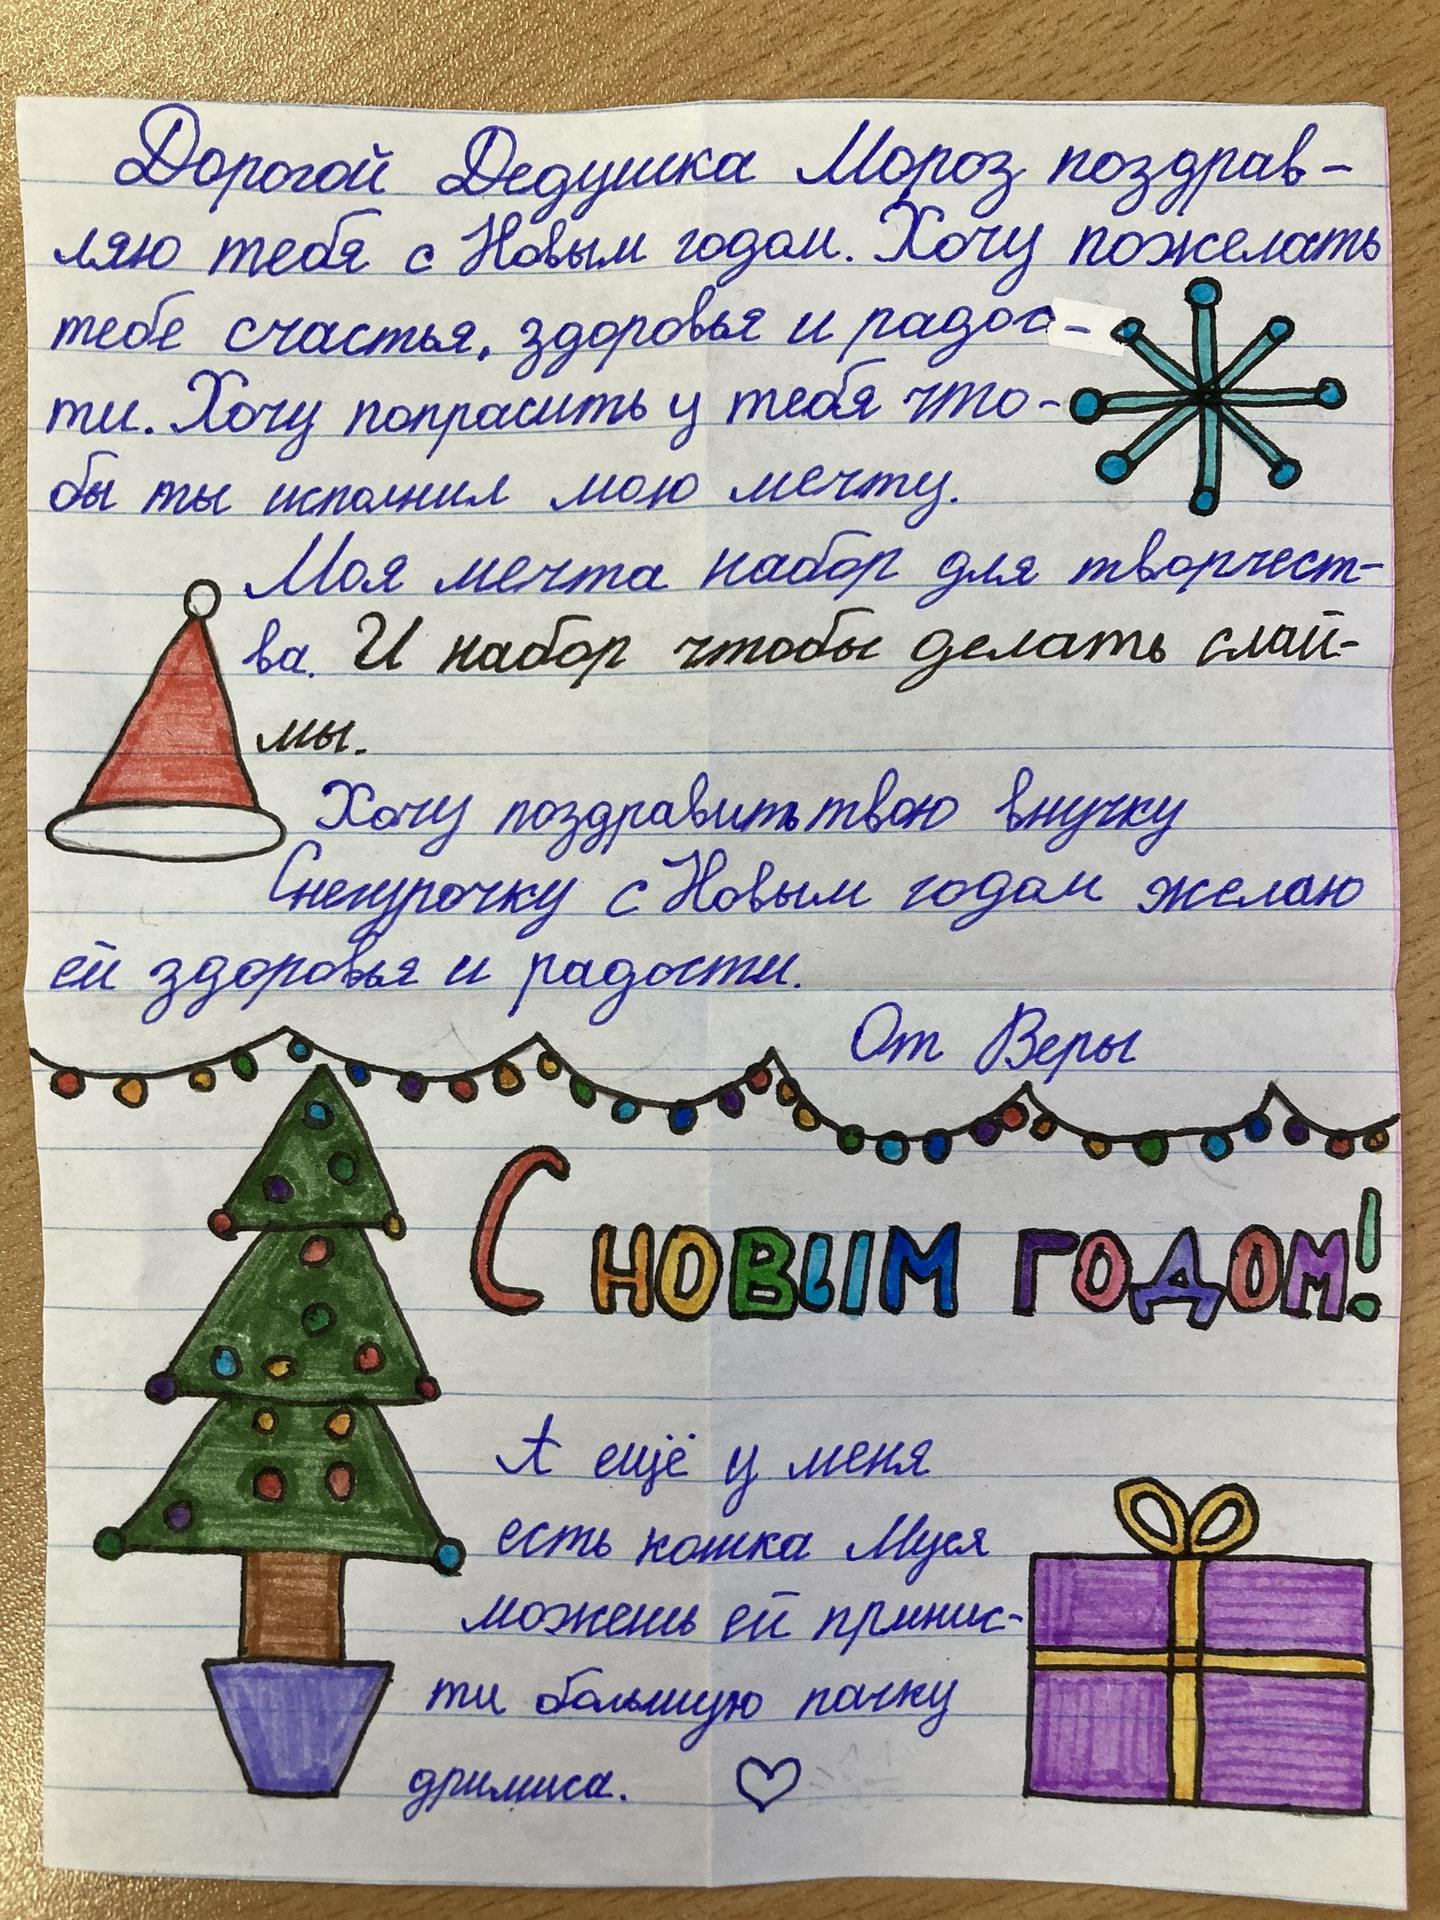 Дорогой Дедушка Мороз поздрав-
ляю тебя с Новым годом. Хочу пожелать
тебе счастья, здоровья и радос-
ти. Хочу попрасить у тебя что-
бы ты исполнил мою мечту.
Моя мечта набор для творчест-
ва. И набор чтобы делать слай-
мы.
Хочу поздравить твою внучку
Снегурочку с Новым годом желаю
ей здоровья и радости.
От Веры
С новым годом!
А ещё у меня
есть кошка Муся
можешь ей принис-
ти большую пачку
дримиса.